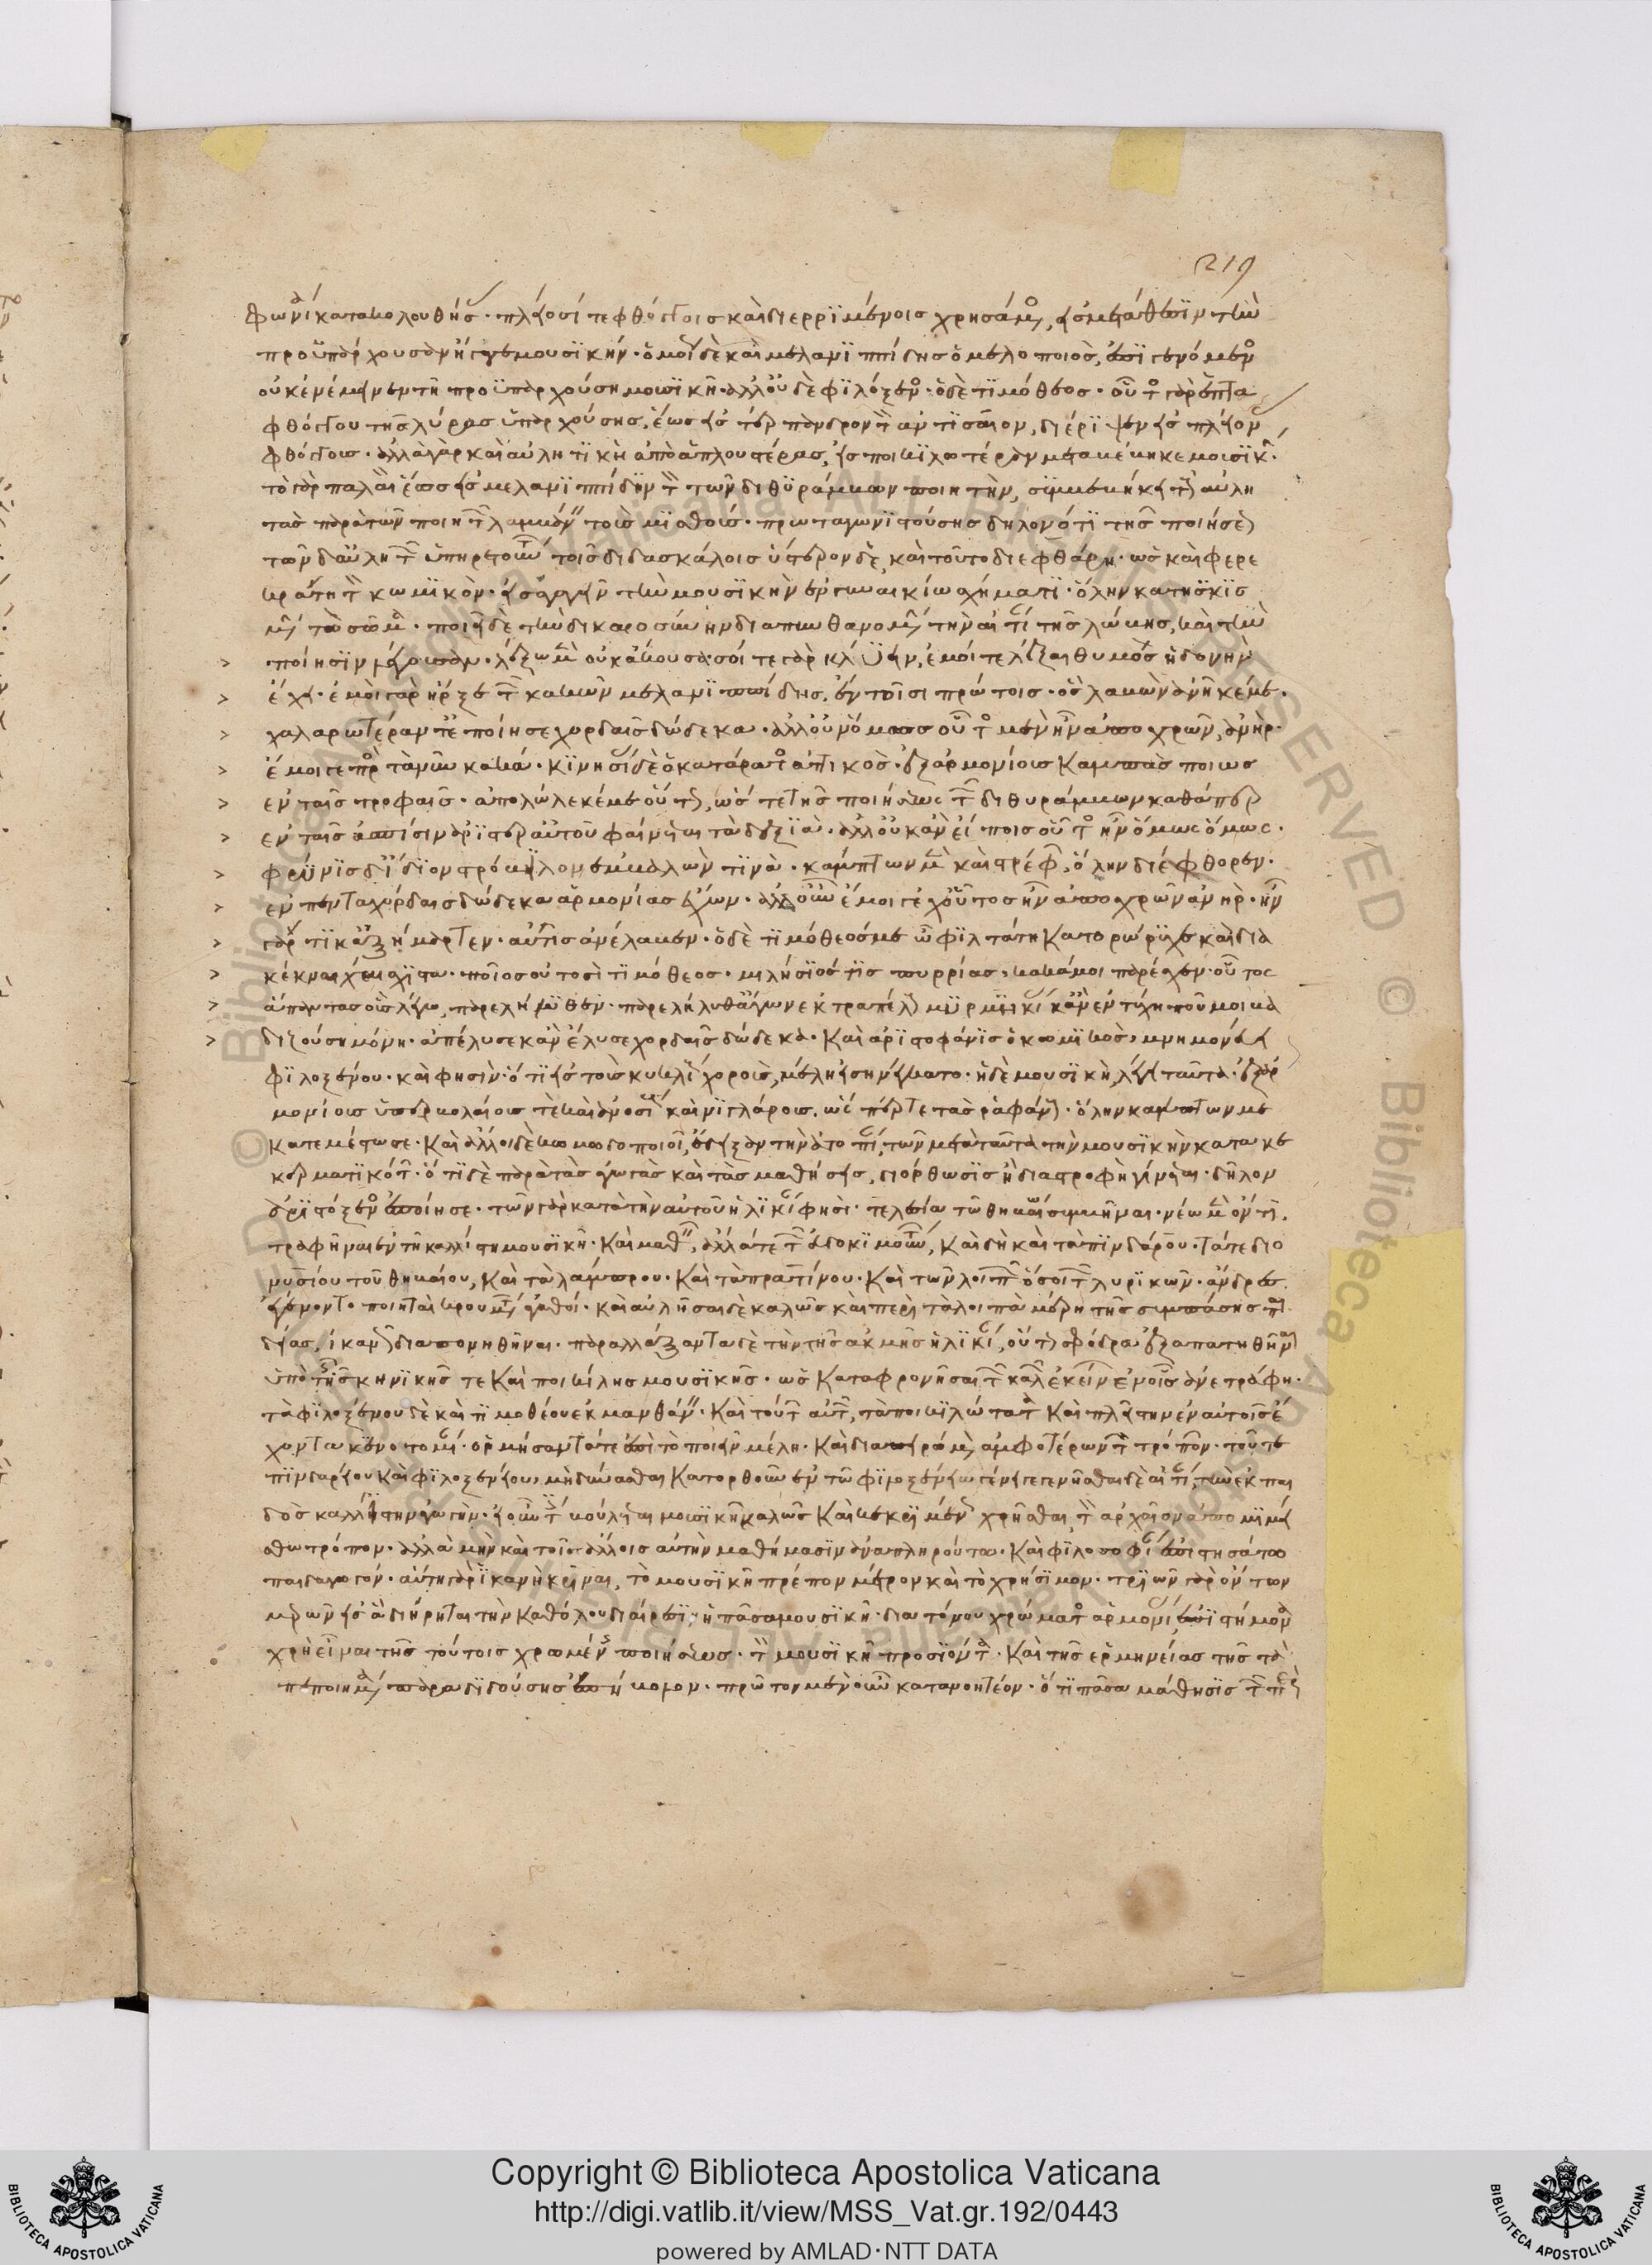 219
φωνίᾳ κατακολουθήσας · πλείοσί τε φθόγγοις καὶ διερριμένοις χρησάμενος, εἰς μετάθεσιν τὴν
προϋπάρχουσαν ἤγαγε μουσικήν · ὁμοίως δὲ καὶ μελανιππίδης ὁ μελοποιός, ἐπιγενόμενος
οὐκ ἐνέμεινεν τῇ προϋπαρχούσῃ μουσικῇ · ἀλλ' οὐδὲ φιλόξενος · οὐδὲ τιμόθεος · οὗτος γὰρ ἑπτα
φθόγγου τῆς λύρας ὑπαρχούσης, ἕως εἰς τέρπανδρον τὸν ἀντισσαῖον, διέρριψεν εἰς πλείονας
φθόγγους · ἀλλὰ γὰρ καὶ αὐλητικὴ ἀπὸ ἁπλουστέρας, εἰς ποικιλωτέραν μεταβέβηκε μουσικήν ·
τὸ γὰρ παλαιὸν ἕως εἰς μελανιππίδην τὸν τῶν διθυράμβων ποιητὴν, συμβεβήκει τοὺς αὐλη
τὰς παρὰ τῶν ποιητῶν λαμβάνειν τοὺς μισθούς · πρωταγωνιστούσης δηλονότι τῆς ποιήσεως
τῶν δ' αὐλητῶν ὑπηρετούντων τοῖς διδασκάλοις ὕστερον δὲ, καὶ τοῦτο διεφθάρη · ὡς καὶ φερε
κράτη τὸν κωμικὸν · εἰσαγαγεῖν τὴν μουσικὴν ἐν γυναικείῳ σχήματι · ὅλην κατῃκισ
μένην τὸ σῶμα · ποιεῖ δὲ τὴν δικαιοσύνην διαπυνθανομένην τὴν αἰτίαν τῆς λώβης, καὶ τὴν
> ποίησιν λέγουσαν · λέξω μὲν οὐκ ἄκουσα · σοί τε γὰρ κλύειν, ἐμοί τε λέξαι θυμὸς ἡδονὴν
> ἔχει · ἐμοὶ γὰρ ἦρξε τῶν κακῶν μελανιππίδης, ἐν τοῖσι πρώτοις · ὃς λαβὼν ἀνῆκέ με ·
> χαλαρωτέραν τ' ἐποίησε χορδαῖς δώδεκα · ἀλλ' οὖν ὅμως οὗτος μὲν ἦν ἀποχρῶν, ἀνὴρ ·
> ἔμοιγε πρὸς τὰ νῦν κακά · κινησίας δὲ ὁ κατάρατος ἀττικὸς · ἐξαρμονίους καμπὰς ποιῶσ
> ἐν ταῖς στροφαῖς · ἀπολώλεκέ με οὕτως, ὥστε τῆς ποιήσεως τῶν διθυράμβων καθάπερ
> ἐν ταῖς ἀσπίσιν ἀριστερ' αὐτοῦ φαίνεται τὰ δεξιὰ · ἀλλ' οὐκ ἂν εἴποις οὗτος ἦν ὅμως ὅμως ·
> φρύνις δ' ἴδιον στρόβιλον ἐμβαλὼν τινὰ · κάμπτων με καὶ στρέφων, ὅλην διέφθορεν ·
> ἐν πενταχόρδαις δώδεκα ἁρμονίας ἔχων · ἀλλ' οὖν ἔμοιγε χοὖτος ἦν ἀποχρῶν ἀνὴρ · ἦν
> γάρ τι κἀξήμαρτεν · αὖτις ἀνέλαβεν · ὁ δὲ τιμόθεός με ὦ φιλτάτη κατορώρυχε καὶ δια
> κέκναικ' αἴσχιστα · ποῖος οὑτοσὶ τιμόθεος · μιλήσιός τις πυρρίας, κακά μοι παρέσχεν οὗτος
> ἅπαντας οὓς λέγω, παρελήλυθεν · παρεληλυθ' ἄγων ἐκτραπέλους μυρμηκιάς κἂν ἐντύχῃ που μοι βα
> διζούσῃ μόνῃ · ἀπέλυσε κἂν ἔλυσε χορδαῖς δώδεκα · καὶ ἀριστοφάνης ὁ κωμικὸς, μνημονεύει
φιλοξένου · καὶ φησὶν · ὅτι εἰς τοὺς κυκλίους χοροὺς, μέλη εἰσηνέγκατο · ἡ δὲ μουσικὴ, λέγει ταῦτα · ἐξαρ
μονίους ὑπερβολαίους τε καὶ ἀνοσίους καὶ νιγλάρους · ὥσπερ τε τὰς ῥαφάνους · ὅλην κάμπτων με
κατεμέστωσε · καὶ ἄλλοι δὲ κωμῳδοποιοὶ, ἔδειξαν τὴν ἀτοπίαν, τῶν μετὰ ταῦτα τὴν μουσικὴν κατακε
κερματικότων · ὅτι δὲ παρὰ τὰς ἀγωγὰς καὶ τὰς μαθήσεις, διόρθωσις ἢ διαστροφὴ γίνεται · δῆλον
ἀριστόξενος ἐποίησε · τῶν γὰρ κατὰ τὴν αὐτοῦ ἡλικίαν φησὶ · τελεσίᾳ τῷ θηβαίῳ συμβῆναι · νέῳ μὲν ὄντι,
τραφῆναι ἐν τῇ καλλίστῃ μουσικῇ · καὶ μαθεῖν, ἄλλα τε τῶν εὐδοκιμούντων, καὶ δὴ καὶ τὰ πινδάρου · τά τε διο
νυσίου τοῦ θηβαίου, καὶ τὰ λάμπρου · καὶ τὰ πρατίνου · καὶ τῶν λοιπῶν ὅσοι τῶν λυρικῶν · ἄνδρες
ἐγένοντο ποιηταὶ κρουμάτων ἀγαθοί · καὶ αὐλῆσαι δὲ καλῶς καὶ περὶ τὰ λοιπὰ μέρη τῆς συμπάσης παι
δείας, ἱκανῶς διαπονηθῆναι · παραλλάξαντα δὲ τὴν τῆς ἀκμῆς ἡλικίαν, οὕτω σφόδρα ἐξαπατηθῆναι
ὑπὸ τῆς σκηνικῆς τε καὶ ποικίλης μουσικῆς · ὡς καταφρονῆσαι τῶν καλῶν ἐκείνων ἐν οἷς ἀνετράφη ·
τὰ φιλοξένου δὲ καὶ τιμοθέου ἐκμανθάνειν · καὶ τούτων αὐτῶν, τὰ ποικιλώτατα καὶ πλείστην ἐν αὐτοῖς ἔ
χοντα καινοτομίαν · ὁρμήσαντά τε ἐπὶ τὸ ποιεῖν μέλη · καὶ διαπειρώμενον ἀμφοτέρων τῶν τρόπων · τοῦ τε
πινδαρείου καὶ φιλοξενείου, μὴ δύνασθαι κατορθοῦν ἐν τῷ φιλοξενείῳ γένει γεγενῆσθαι δὲ αἰτίαν, τὴν ἐκ παι
δὸς καλλίστην ἀγωγὴν · εἰ οὖν τις βούλεται μουσικῇ καλῶς καὶ κεκριμένως χρῆσθαι, τὸν ἀρχαῖον ἀπομιμεί
σθω τρόπον · ἀλλὰ μὴν καὶ τοῖς ἄλλοις αὐτὴν μαθήμασιν ἀναπληρούτω · καὶ φιλοσοφίαν ἐπιστησάτω
παιδαγωγόν · αὕτη γὰρ ἱκανὴ κρῖναι, τὸ μουσικῇ πρέπον μέτρον καὶ τὸ χρήσιμον · τριῶν γὰρ ὄντων
μερῶν εἰς ἃ διῄρηται τὴν καθόλου διαίρεσιν, ἡ πᾶσα μουσικὴ · διατόνου χρώματος ἁρμονίας, ἐπιστήμονα
χρὴ εἶναι τῆς τούτοις χρωμένης ποιήσεως · τὸν μουσικῇ προσιόντα · καὶ τῆς ἑρμηνείας τῆς τὰ
πεποιημένα παραδιδούσης ἐπήβολον · πρῶτον μὲν οὖν κατανοητέον · ὅτι πᾶσα μάθησις τῶν περὶ
Copyright © Biblioteca Apostolica Vaticana
http://digi.vatlib.it/view/MSS_Vat.gr.192/0443
powered by AMLAD·NTT DATA